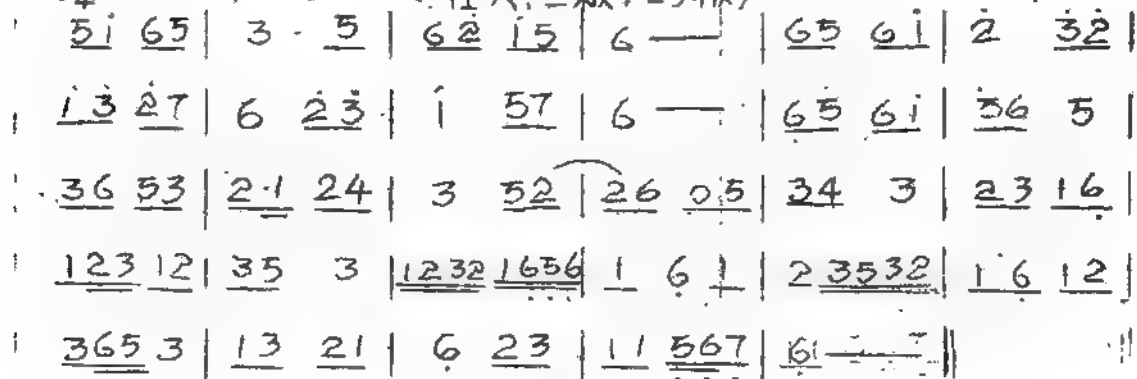 5i 65 | 3 · 5 | 62̇ i5 | 6 — | 65 6i | 2̇ 3̇2̇ |
i3̇ 2̇7 | 6 2̇3̇ | i 57 | 6 — | 65 6i | 36 5 |
36 53 | 2·1 24 | 3 52 | 26 05 | 34 3 | 23 16̣ |
123 12 | 35 3 | 1232 16̣5̣6̣ | 1 6̣ 1 | 2 3532 | 1 6̣ 12 |
365 3 | 13 21 | 6̣ 23 | 11 5̣6̣7̣ | 6̣ — ‖